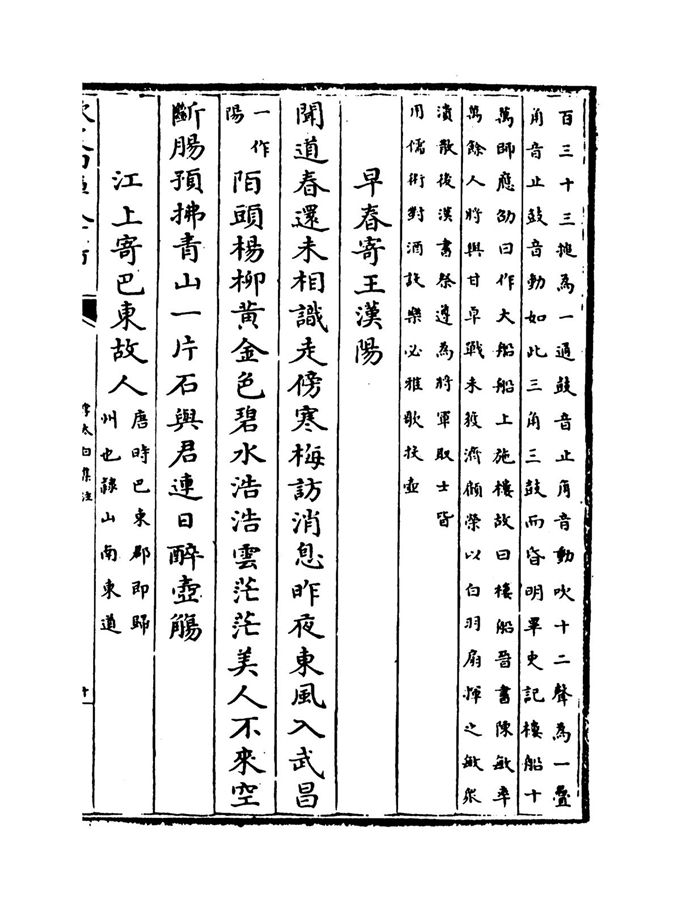 百三十三搥為一通鼓音止角音動吹十二聲為一疊
角音止鼓音動如此三角三鼓而昏明畢史記樓船十
萬師應劭曰作大船船上施樓故曰樓船晉書陳敏率
萬餘人將與甘卓戰未獲濟顧榮以白羽扇揮之敏衆
潰散後漢書祭遵為將軍取士皆
用儒術對酒設樂必雅歌投壺
早春寄王漢陽
聞道春還未相識走傍寒梅訪消息昨夜東風入武昌
一作
陽
陌頭楊柳黄金色碧水浩浩雲茫茫美人不來空
斷腸預拂青山一片石與君連日醉壺觴
江上寄巴東故人
唐時巴東郡即歸
州也隸山南東道
李太白集注